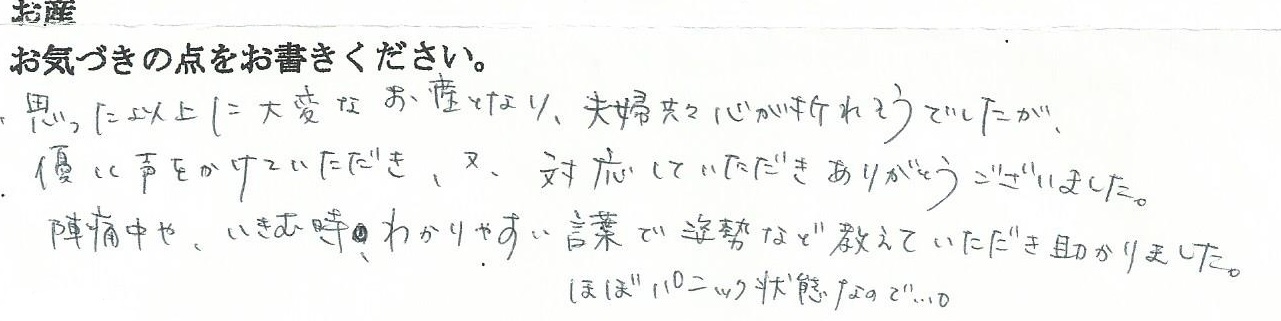 お産
お気づきの点をお書きください。
思った以上に大変なお産となり、夫婦共々心が折れそうでしたが、
優しく声をかけていただき、又、対応していただきありがとうございました。
陣痛中や、いきむ時、わかりやすい言葉で姿勢など教えていただき助かりました。
ほぼパニック状態なので…。